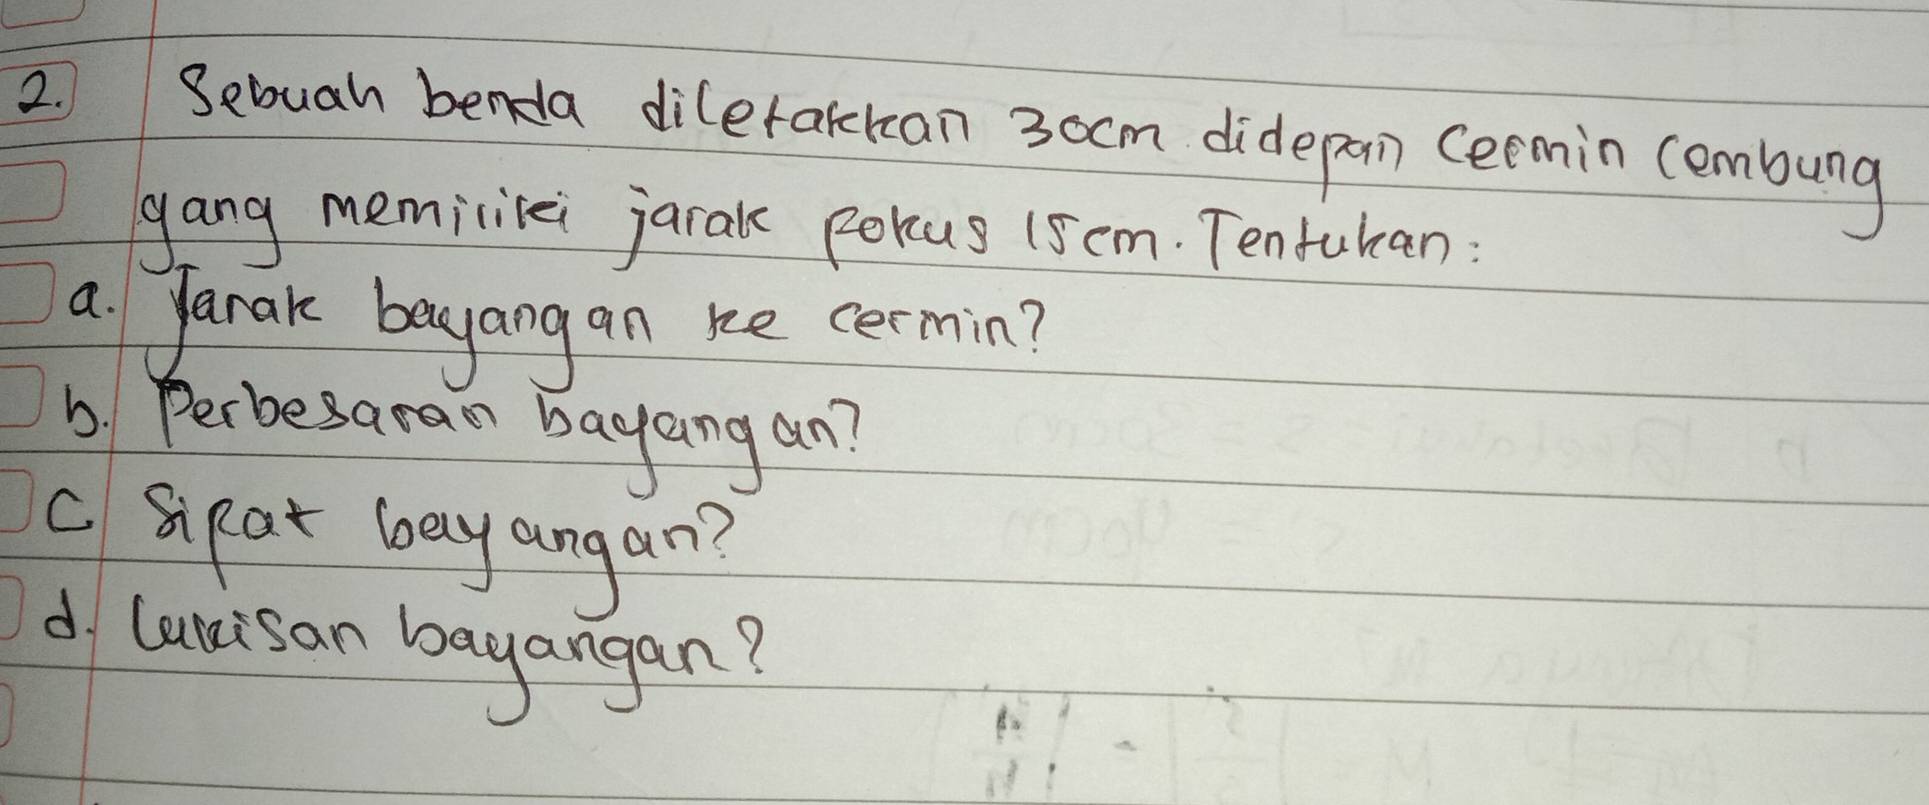 2. Sebuah benda diletakkan 30cm didepan cermin cembung
yang memiliki jarak fokus 15cm. Tentukan:
a. Jarak bayangan ke cermin?
b. Perbesaran bayangan?
c Sifat bayangan?
d. Lukisan bayangan?